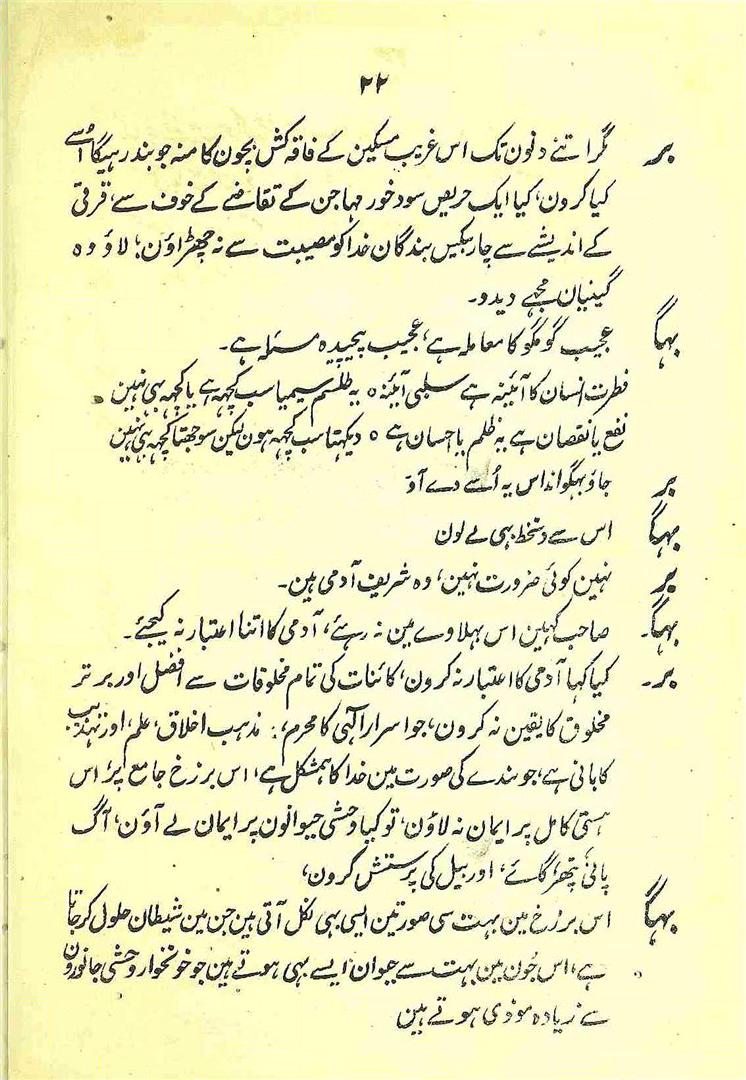 ۲۲
بر مگر اتنے دنون تک اس غریب مسکین کے فاقہ کش بچون کا منہ جو بند رہیگا اُسے
کیا کرون، کیا ایک حریص سود خور مہاجن کے تقاضے کے خوف سے، قرقی
کے اندیشے سے چار بیکس بندگان خدا کو مصیبت سے نہ چھڑاؤن؛ لاؤ وہ
گینیان مجہے دیدو۔
بہگا عجیب گومگو کا معاملہ ہے، عجیب پیچیدہ مسئلہ ہے۔
فطرت انسان کا آئینہ ہے سلبی آئینہ ٥ یہ طلسم سیمیا سب کچہہ ہے یا کچہہ بہی نہین
نفع یا نقصان ہے یہ ظلم یا احسان ہے ٥ دیکہتا سب کچہہ ہون لیکن سوجہتا کچہہ بہی نہین
بر جاؤ بہگوانداس یہ اُسے دے آؤ
بہگا اس سے دستخط بہی لے لون
بر نہین کوئی ضرورت نہین، وہ شریف آدمی ہین۔
بہگا۔ صاحب کہین اس بہلاوے مین نہ رہئے، آدمی کا اتنا اعتبار نہ کیجئے۔
بر۔ کیا کہا آدمی کا اعتبار نہ کرون، کائنات کی تمام مخلوقات سے افضل اور برتر
مخلوق کا یقین نہ کرون، جو اسرار الٰہی کا محرم، مذہب اخلاق، علم، اور تہذیب
کا بانی ہے، جو بندے کی صورت مین خدا کا ہمشکل ہے، اس برزخ جامع پر، اس
ہستی کامل پر ایمان نہ لاؤن، تو کیا وحشی حیوانون پر ایمان لے آؤن، آگ
پانی، پتھر، گائے، اور بیل کی پرستش کرون،
بہگا اس برزخ مین بہت سی صورتین ایسی بہی نکل آتی ہین جن مین شیطان حلول کر جاتا
ہے، اس جُون مین بہت سے حیوان ایسے بہی ہوتے ہین جو خونخوار وحشی جانورون
سے زیادہ موذی ہوتے ہین